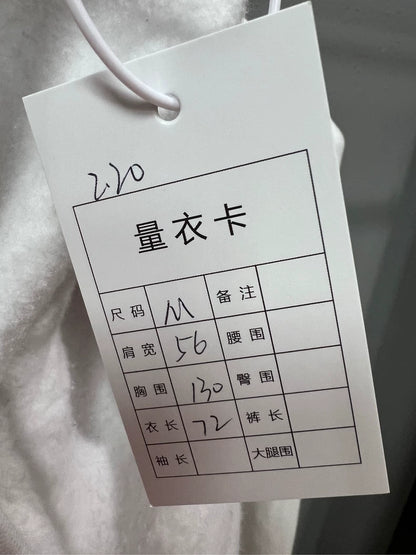 2.20
量衣卡
尺码 M 备注
肩宽 56 腰围
胸围 130 臀围
衣长 72 裤长
袖长 大腿围